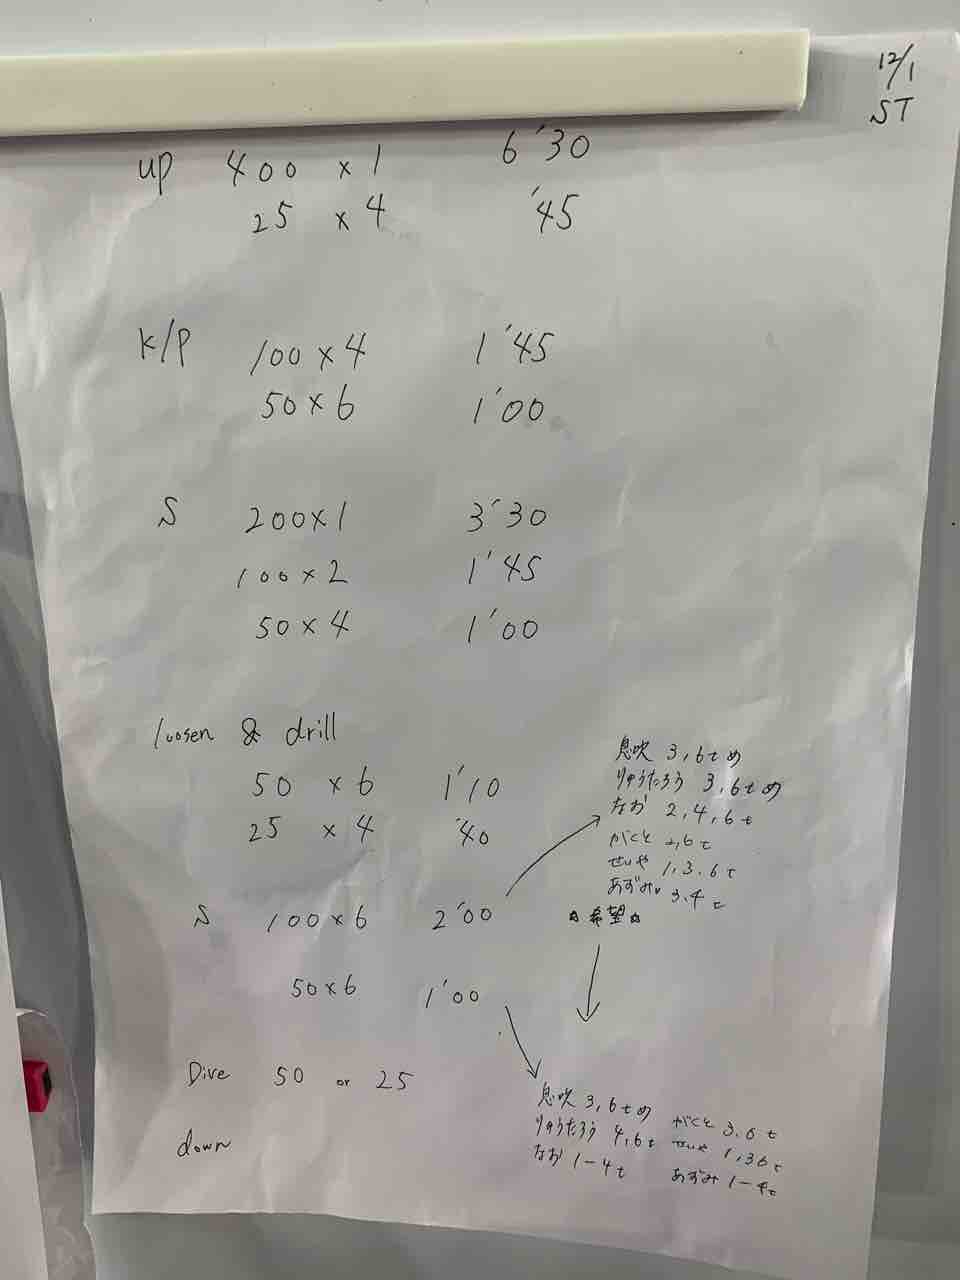 12/1
ST
up 400 x 1 6'30
25 x 4 '45
K/P 100 x 4 1'45
50 x 6 1'00
S 200 x 1 3'30
100 x 2 1'45
50 x 4 1'00
loosen & drill
50 x 6 1'10
25 x 4 '40
S 100 x 6 2'00
50 x 6 1'00
息吹 3,6tめ
りゅうたろう 3,6tめ
なお 2,4,6t
がくと 2,6t
せいや 1,3,6t
あずみ 3,4t
☆希望☆
Dive 50 or 25
down
息吹 3,6tめ
りゅうたろう 4,6t
なお 1-4t
がくと 3,6t
せいや 1,36t
あずみ 1-4t